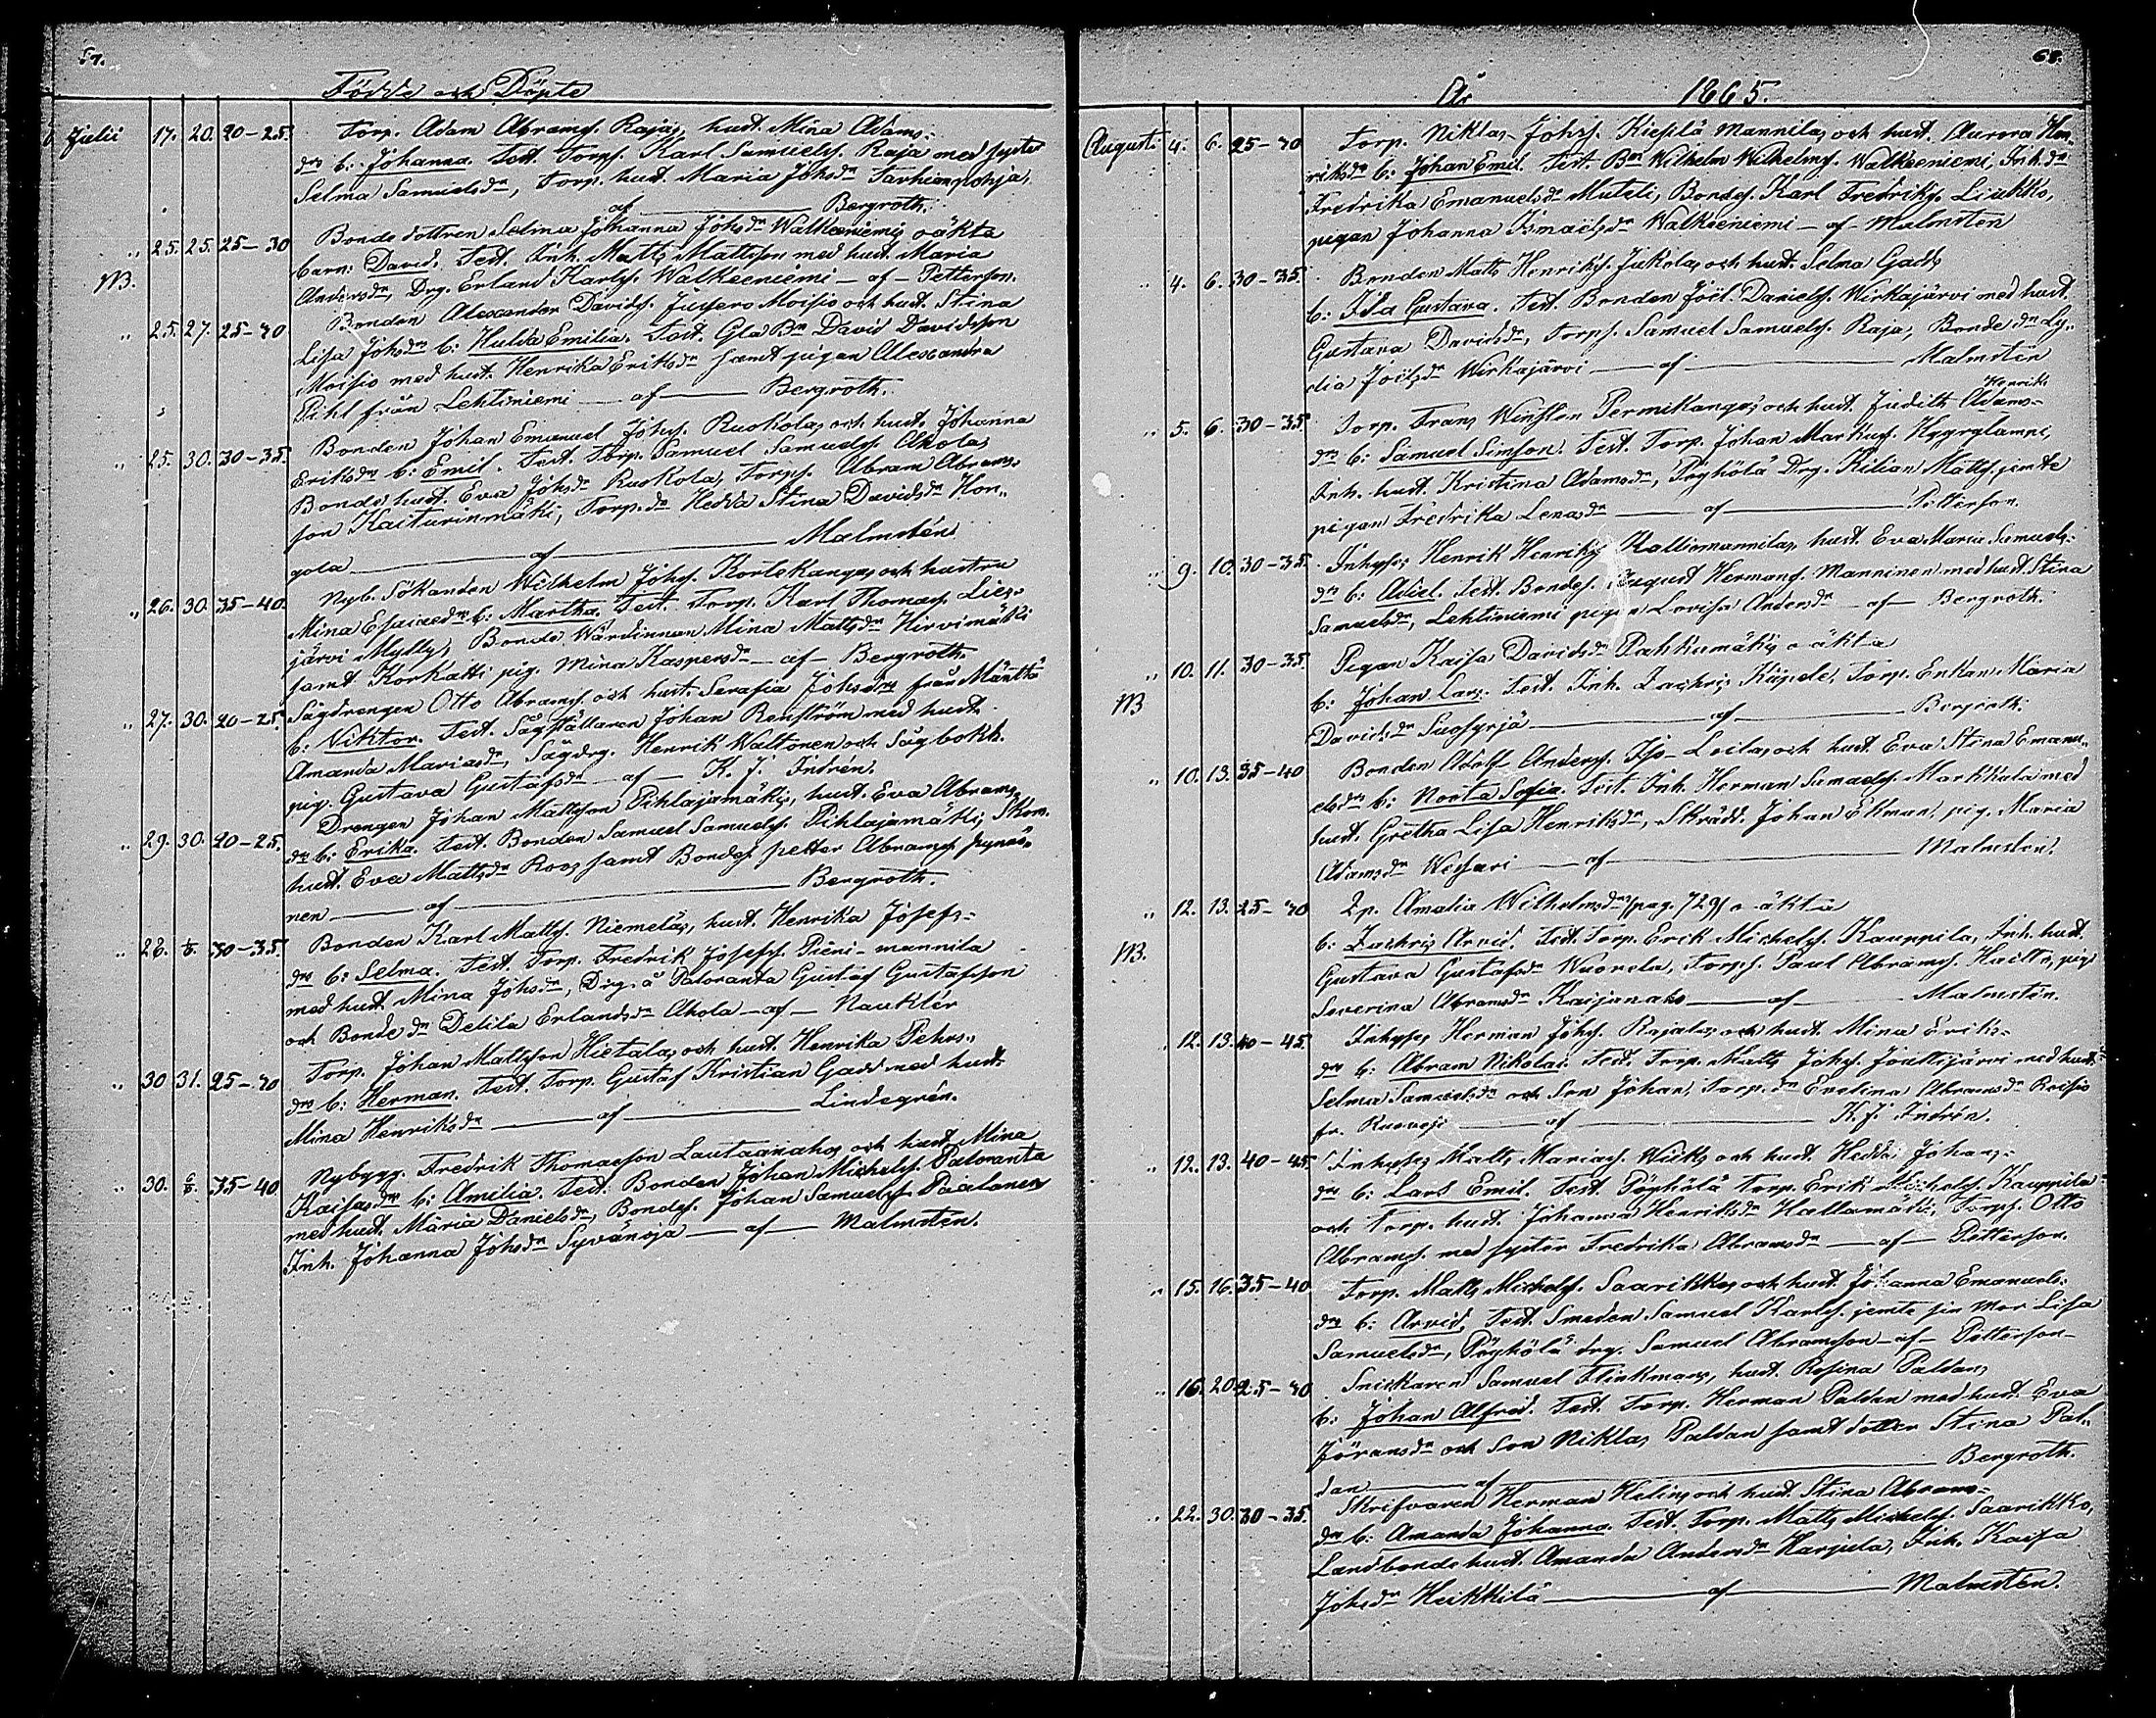 57.
Födde och Döpte
Julii 17. 20. 20-25. Torp. Adam Abramss. Rajas, hust. Mina Adams-
drs b: Johanna. Test. Torps. Karl Samuelss. Raja med syster
Selma Samuelsdr, Torp. hust. Maria Johsdr Tarhienpohja,
af Bergroth.
" 25. 25. 25-30 Bonde dottren Selma Johanna Johsdr Walkeeniemis oäkta
barn: David. Test. Inh. Matts Mattsson med hust. Maria
M. Andersdr, Drg. Erland Karlss. Walkeeniemi - af - Petterson.
" 25. 27. 25-30 Bonden Alexander Davidss. Jussero Moisio och hust. Stina
Lisa Johsdrs b: Hulda Emilia. Test. Gla Bn David Davidsson
Moisio med hust. Henrika Eriksdr samt pigan Alexandra
Pihl från Lehtiniemi - af - Bergroth.
" 25. 30. 30-35. Bonden Johan Emanuel Johss. Ruokolas och hust. Johanna
Eriksdrs b: Emil. Test. Torp. Samuel Samuelss. Ahola,
Bonde hust. Eva Johsdr Ruokola, Torps. Abram Abrams-
son Kaiturinmäki, Torp.dr Hedda Stina Davidsdr Hon-
gola af Malmstén
" 26. 30. 35-40. Nyb. Sökanden Wilhelm Johss. Kortekangas och hustru
Mina Esaiaedrs b: Martha. Test. Torp. Karl Thomass. Lies-
järvi Mylly, Bonde Wärdinnan Mina Mattsdr Hirvimäki
samt Korkatti pig. Mina Kaspersdr - af - Bergroth.
" 27. 30. 20-25. Sågdrengen Otto Abramss. och hust. Serafia Johsdrs från Mänttä
b: Viktor. Test. Sågställaren Johan Renström med hust.
Amanda Mariasdr, Sågdrg. Henrik Waltonen och Sågbokh.
pig. Gustava Gustafsdr - af - K. J. Indrén.
" 29. 30. 20-25. Drengen Johan Mattsson Pihlajamäkis, hust. Eva Abrams-
drs b: Erika. Test. Bonden Samuel Samuelss. Pihlajamäki, Skom.
hust. Eva Mattsdr Roos samt Bondes. Petter Abramss. Pynnö-
nen af Bergroth.
" 28. 30-35. Bonden Karl Mattss. Niemeläs, hust. Henrika Josefs-
drs b: Selma. Test. Torp. Fredrik Josefss. Pieni-mannila
med hust. Mina Johsdr, Drg. å Patoranta Gustaf Gustafsson
och Bonde dr Delila Erlandsdr Ahola - af - Nauklér
" 30 31. 25-30 Torp. Johan Mattsson Hietalas och hust. Henrika Pehrs-
drs b: Herman. Test. Torp. Gustaf Kristian Gadd med hust.
Mina Henriksdr af Lindegrén.
" 30. 6/8. 35-40. Nybygg. Fredrik Thomasson Lautaanahos och hust. Mina
Kaisasdrs b: Amilia. Test. Bonden Johan Michelss. Patoranta
med hust. Maria Danielsdr, Bondes. Johan Samuelss. Paalanen,
Inh. Johanna Johsdr Syvänoja - af - Malmstén.
68.
År 1865.
Augusti 4. 6. 25-30 Torp. Niklas Johss. Kiesilä Mannilas och hust. Aurora Hen-
riksdrs b: Johan Emil. Test. Bn Wilhelm Wilhelmss. Walkeeniemi, Inh.dr
Fredrika Emanuelsdr Muteli, Bondes. Karl Fredrikss. Liukko,
pigan Johanna Ismaelsdr Walkeeniemi - af - Malmstén
" 4. 6. 30-35. Bonden Matts Henrikss. Jukolas och hust. Selma Gadds
b: Ida Gustava. Test. Bonden Joel Danielss. Wirkajärvi med hust.
Gustava Davidsdr, Torps. Samuel Samuelss. Raja, Bonde dr Ly-
dia Joelsdr Wirkajärvi af Malmstén
" 5. 6. 30-35 Torp. Frans Winstén Permikangas och hust. Judith Adams- Henriks
drs b: Samuel Simson. Test. Torp. Johan Markuss. Hygrylampi,
Inh. hust. Kristina Adamsdr, Pöyhölä Drg. Kilian Mattss. jemte
pigan Fredrika Lenasdr af Petterson.
" 9. 10. 30-35. Inhyses Henrik Henrikss. Kalliomannilas, hust. Eva Maria Samuels-
drs b: Adiel. Test. Bondes. August Hermanss. Manninen med hust. Stina
Samuelsdr, Lehtiniemi pigan Lovisa Andersdr - af - Bergroth.
" 10. 11. 30-35. Pigan Kaisa Davidsdr Pahkumäkis o äkta
M b: Johan Lars. Test. Inh. Zachris Küpele, Torp. Enkan Maria
Davidsdr Suosyrjä af Bergroth.
" 10. 13. 35-40 Bonden Adolf Anderss. Iso-Leilas och hust. Eva Stina Emanu-
elsdrs b: Norta Sofia. Test. Inh. Herman Samuelss. Markkula med
hust. Gretha Lisa Henriksdr, Skrädd. Johan Ekman, pig. Maria
Adamsdr Wessari af Malmstén.
" 12. 13. 25-30 Lp. Amalia Wilhelmsdrs (pag. 729) o-äkta
M. b: Zachris Arvid. Test. Torp. Erik Michelss. Kauppila, Inh. hust.
Gustava Gustafsdr Wuorela, Torps. Paul Abramss. Haitto, pig.
Severina Abramsdr Kaijanaho af Malmstén.
" 12. 13. 40-45. Inhyses Herman Johss. Rajalas och hust. Mina Eriks-
drs b: Abram Nikolai. Test. Torp. Matts Johss. Jouttijärvi med hust.
Selma Samuelsdr och Son Johan, Torp.dr Evelina Abramsdr Roisio
fr. Ruovesi af K.J. Indrén.
" 12. 13. 40-45. Inhyses Matts Mariass. Wiiks och hust. Hedda Johans-
drs b: Lars Emil. Test. Pöyhölä Torp. Erik Michelss. Kauppila
och Torp. hust. Johanna Henriksdr Hallamäki, Torps. Otto
Abramss. med syster Fredrika Abramsdr af Petterson.
" 15. 16. 35-40 Torp. Matts Michelss. Saarikkos och hust. Johanna Emanuels-
drs b: Arvid. Test. Smeden Samuel Karlss. jemte sin Mor Lisa
Samuelsdr, Pöyhölä drg. Samuel Abramsson - af - Petterson
" 16. 20. 25-30 Snickaren Samuel Flinkmans, hust. Rosina Paldans
b: Johan Alfred. Test. Torp. Herman Paldan med hust. Eva
Jöransdr och Son Niklas Paldan samt dotter Stina Pal-
dan af Bergroth.
" 22. 30. 30-35. Skrifvaren Herman Helins och hust. Stina Abrams-
drs b: Amanda Johanna. Test. Torp. Matts Michelss. Saarikko,
Landbonde hust. Amanda Andersdr Harjula, Inh. Kaisa
Johsdr Heikkilä af Malmstén.